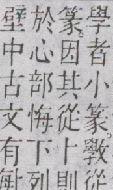 學者小篆敎從
篆因其從丄則
於心部悔下列
壁中古文有